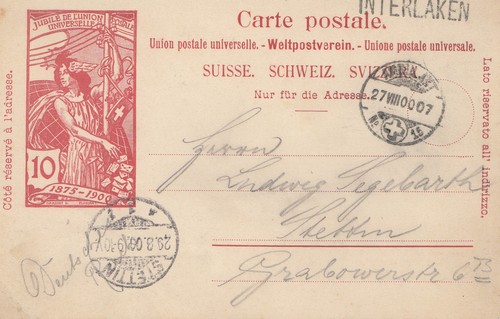 JUBILÉ DE L'UNION POSTALE
UNIVERSELLE
10
1875-1900
Carte postale.
INTERLAKEN
Union postale universelle. - Weltpostverein. - Unione postale universale.
SUISSE. SCHWEIZ. SVIZZERA.
Nur für die Adresse.
Côté réservé à l'adresse.
Lato riservato all' indirizzo.
27 VIII 00 07
No 16
Herrn
Ludwig Segebarth
Stettin
Grabowerstr 6 B
STETTIN